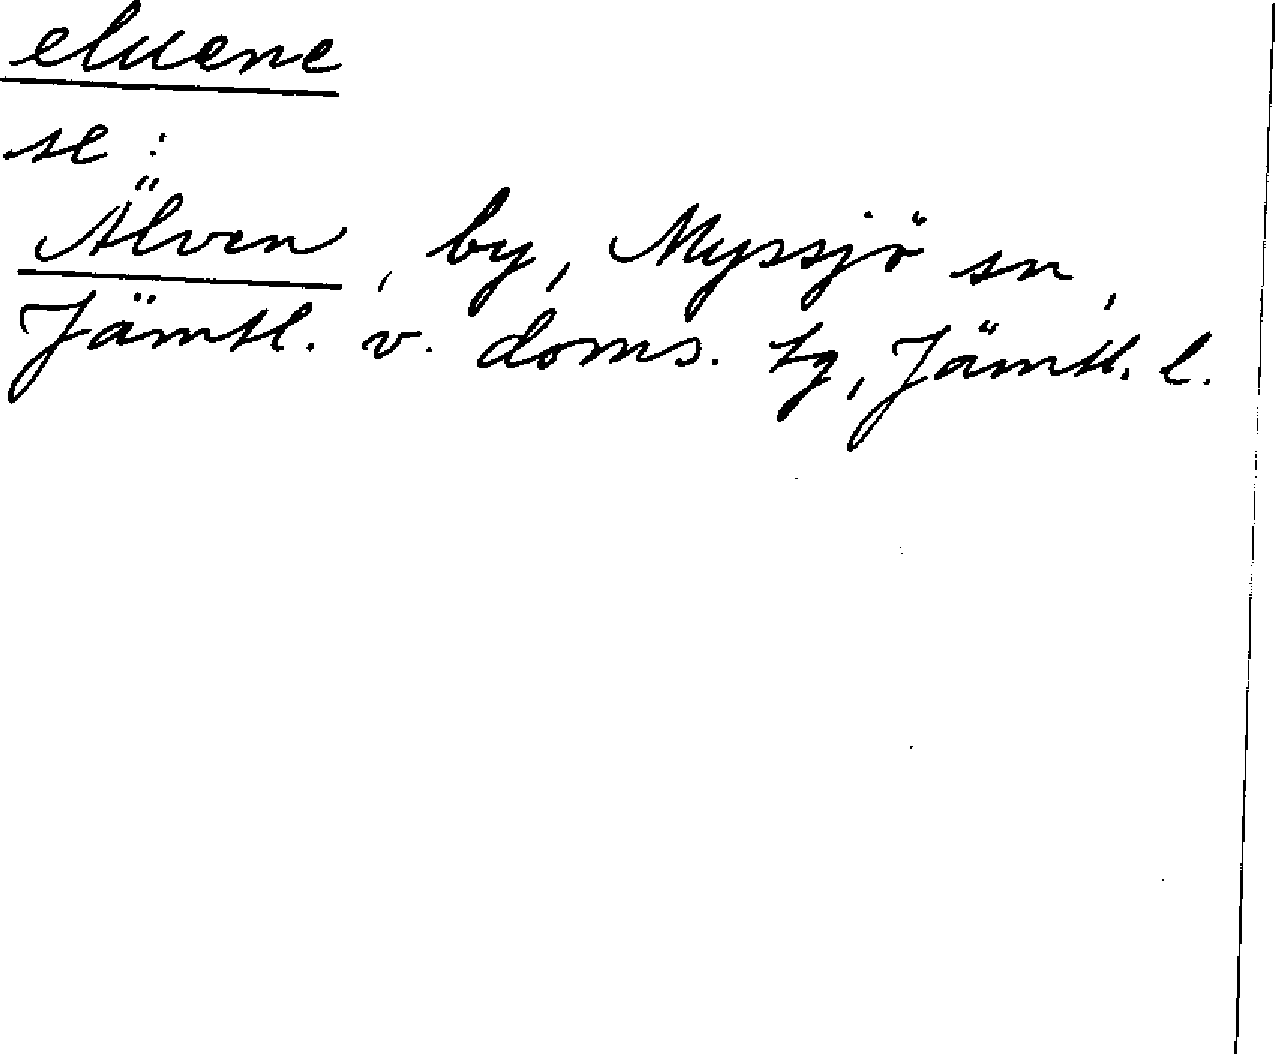 eluene
se:
Älven, by, Myssjö sn,
Jämtl. v. doms. tg, Jämtl. l.